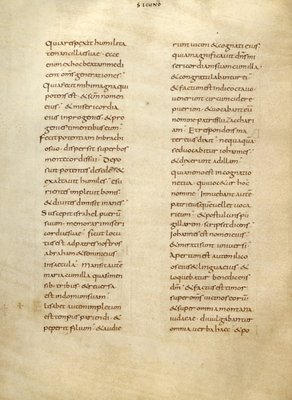 SECUND
Quia respexit humilita
tem ancillae suae · ecce
enim ex hoc beatam me di
cent oms generationes ·
Quia fecit mihi magna qui
potens est · & scm nomen
eius · & misericordia
eius in progenies & pro
genies timentibus eum
Fecit potentiam in brachi
o suo · dispersit superbos
mente cordis sui · Depo
suit potentes de sede · &
exaltavit humiles · esu
rientes implevit bonis
& divites dimisit inanes ·
Suscepit israhel puerū
suum · memorari miseri
cordiae suae · sicut locu
tus est ad patres nostros
abraham & semini eius
in saecula · Mansit autē
maria cum illa quasi men
sibus tribus · & reversa
est in domum suam
Elisabet autem impletum
est tempus pariendi · &
peperit filium · & audie
runt vicini & cognati eius
quia magnificavit dns mi
sericordiam suam cum illa
& congratulabantur ei
& factum est in die octavo
venerunt circumcidere
puerum · & vocabant eū
nomine patris sui zachari
am · Et respondens ma
ter eius dixit · nequaquā
sed vocabitur iohannes ·
& dixerunt ad illam ·
quia nemo est in cognatio
ne tua · qui vocetur hoc
nomine · Innuebant autē
patri eius quem vellet voca
ri eum · & postulans pu
gillarem scripsit dicens
Iohannes est nomen eius
& mirati sunt universi ·
Apertum est autem ilico
os eius & lingua eius · &
loquebatur benedicens
dm · & factus est timor
super oms vicinos eorū
& super omnia montana
iudaeae divulgabantur
omnia verba haec · & po